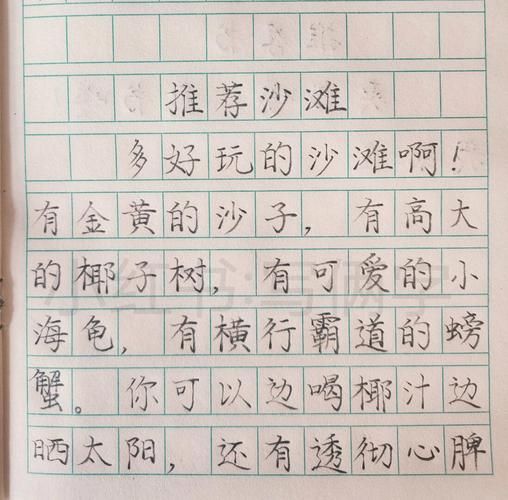 推荐沙滩
多好玩的沙滩啊！
有金黄的沙子，有高大
的椰子树，有可爱的小
海龟，有横行霸道的螃
蟹。你可以边喝椰汁边
晒太阳，还有透彻心脾